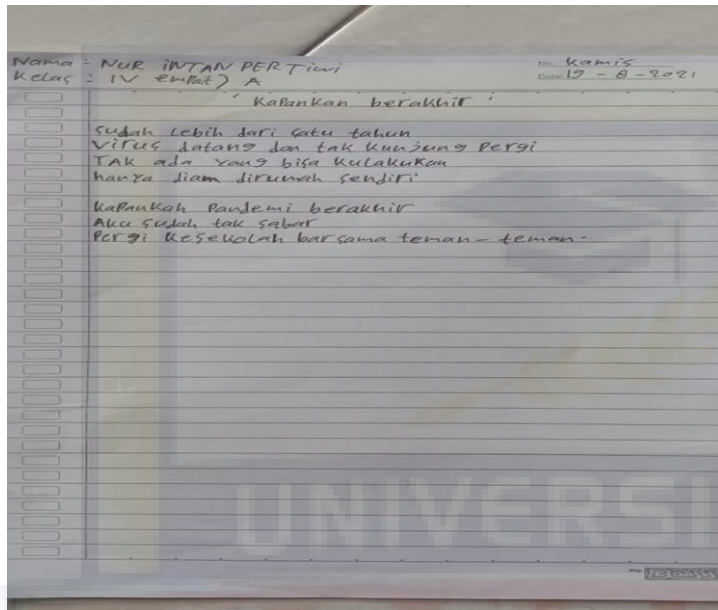 Nama : NUR INTAN PERTIWI
No. Kamis
Kelas : IV empat) A
Date 19 - 8 - 2021
" Kapankan berakhir "
Sudah lebih dari satu tahun
Virus datang dan tak kunjung pergi
TAK ada yang bisa kulakukan
hanya diam dirumah sendiri
Kapankah Pandemi berakhir
Aku sudah tak sabar
Pergi kesekolah barsama teman - teman.
UNIVERSI